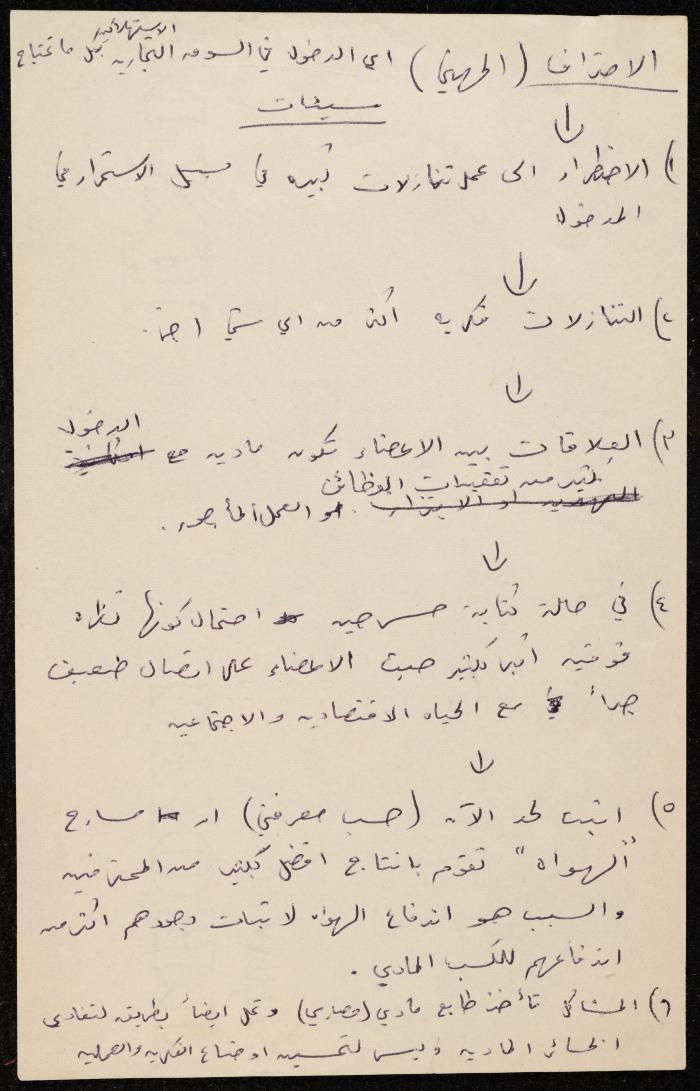 الاستهلاكيه
الاحتراف (المهني) اي الدخول في السوق التجاريه بكل ما تحتاج
سيئات
١) الاضطرار الى عمل تنازلات كبيره في سبيل الاستمرار في
الدخول
٢) التنازلات فكريه اكثر من اي شيء اخر.
الدخول
٣) العلاقات بين الاعضاء تكون ماديه مع
كثير من تعقيدات الوظائف
او العمل المأجور.
٤) في حالة كتابة مسرحيه احتمال كونها نظره
فوقيه اكبر بكثير حيث الاعضاء على اتصال ضعيف
جداً مع الحياه الاقتصاديه والاجتماعيه
٥) اثبت لحد الآن (حسب معرفتي) ان مسارح
"الهواه" تقوم بانتاج افضل بكثير من المحترفين
والسبب هو اندفاع الهواه لاثبات وجودهم اكثر من
اندفاعهم للكسب المادي.
٦) المشاكل تأخذ طابع مادي (مصاري) وتحل ايضاً بطريقه لتفادي
الخسائر الماديه وليس لتحسين اوضاع الفكريه والعمليه